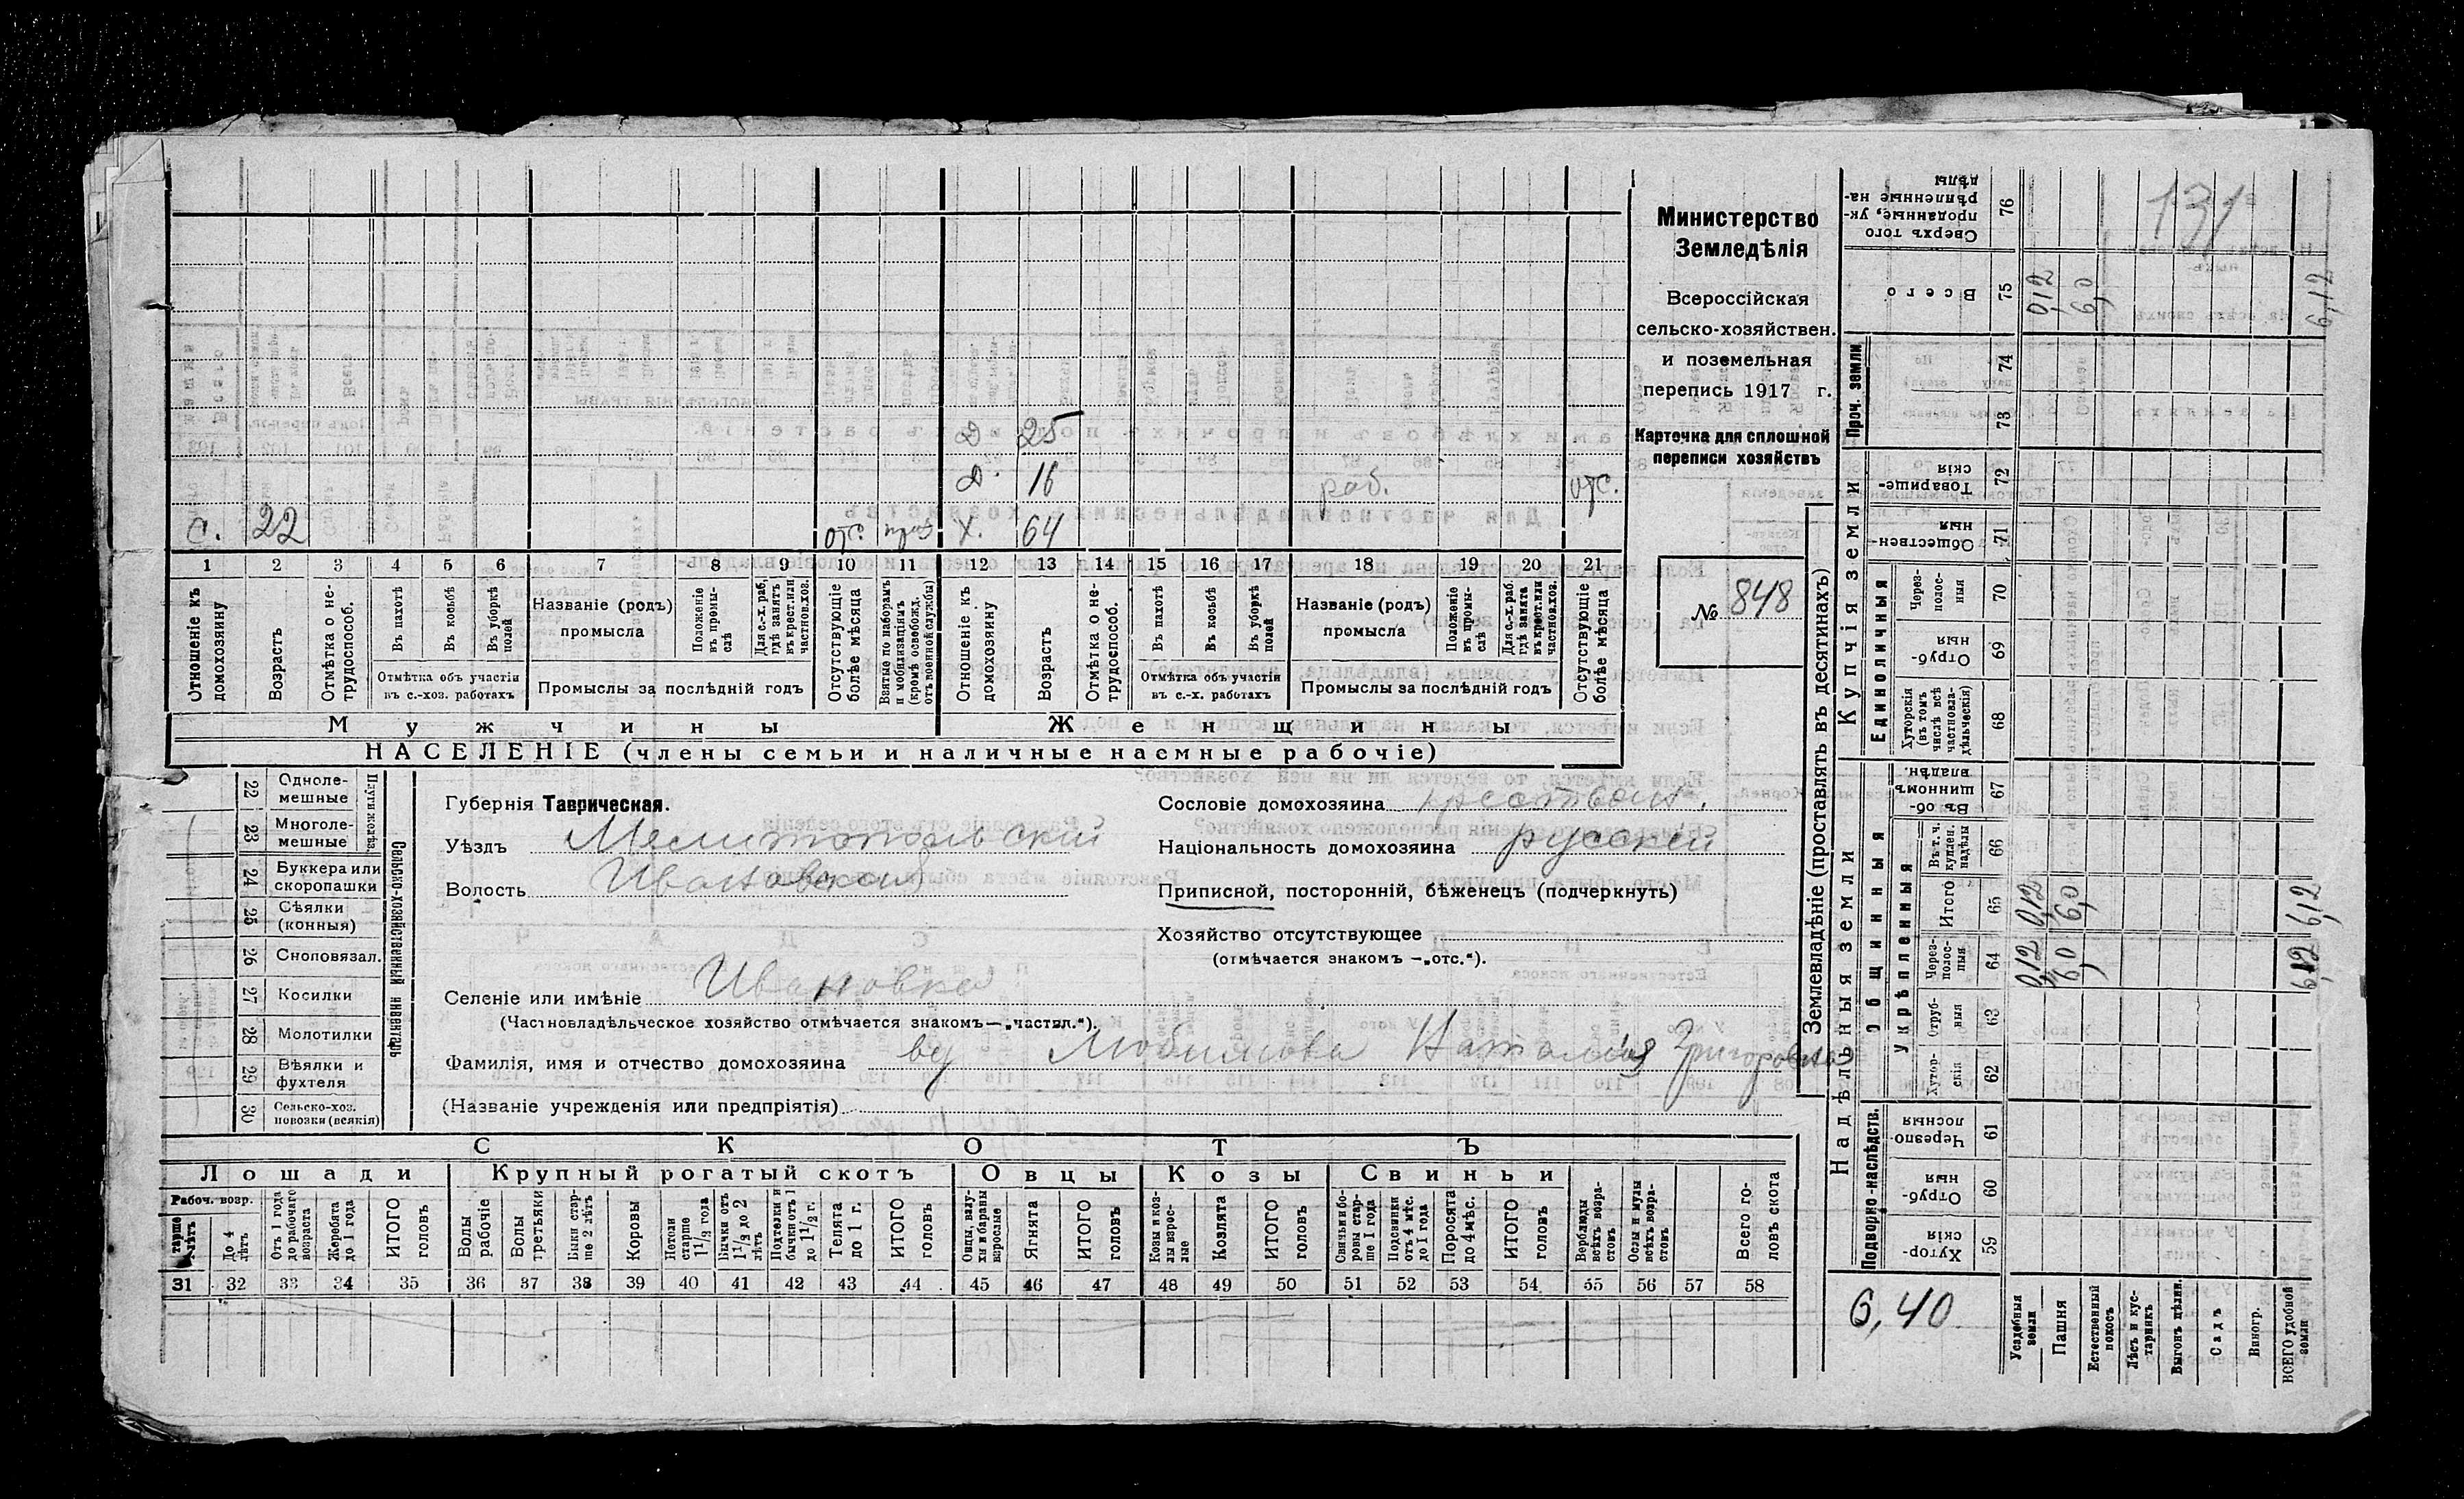 131
Министерство
Земледѣлія
Всероссійская
сельско-хозяйствен.
и поземельная
перепись 1917 г.
Карточка для сплошной
переписи хозяйствъ
№ 848
Д 25
Д. 16 раб. отс.
С. 22 отс. Х. 64
1 2 3 4 5 6 7 8 9 10 11 12 13 14 15 16 17 18 19 20 21
Отношеніе къ домохозяину
Возрастъ
Отмѣтка о нетрудоспособ.
Въ пахотѣ
Въ косьбѣ
Въ уборкѣ полей
Отмѣтка объ участіи
въ с.-хоз. работахъ
Названіе (родъ)
промысла
Положеніе въ промыслѣ
Для с.-х. раб. гдѣ занятъ въ крест. или частнов. хоз.
Промыслы за послѣдній годъ
Отсутствующіе болѣе мѣсяца
Взятые по наборамъ и мобилизаціямъ (кромѣ освобожд. отъ военной службы)
Отношеніе къ домохозяину
Возрастъ
Отмѣтка о нетрудоспособ.
Въ пахотѣ
Въ косьбѣ
Въ уборкѣ полей
Отмѣтка объ участіи
въ с.-х. работахъ
Названіе (родъ)
промысла
Положеніе въ промыслѣ
Для с.-х. раб. гдѣ занята въ крест. или частнов. хоз.
Промыслы за послѣдній годъ
Отсутствующіе болѣе мѣсяца
Мужчины Женщины
НАСЕЛЕНІЕ (члены семьи и наличные наемные рабочіе)
22 Однолемешные
23 Многолемешные
24 Буккера или скоропашки
25 Сѣялки (конныя)
26 Сноповязал.
27 Косилки
28 Молотилки
29 Вѣялки и фухтеля
30 Сельско-хоз. повозки (всякія)
Сельско-хозяйственный инвентарь
Губернія Таврическая.
Уѣздъ Мелитопольскій
Волость Ивановской
Сословіе домохозяина крестьян.
Національность домохозяина русскій
Приписной, посторонній, бѣженецъ (подчеркнуть)
Хозяйство отсутствующее
(отмѣчается знакомъ —„отс.“).
Селеніе или имѣніе Ивановка
(Частновладѣльческое хозяйство отмѣчается знакомъ—„частвл.“).
Фамилія, имя и отчество домохозяина Любимова Наталія Григоровна
(Названіе учрежденія или предпріятія)
СКОТЪ
Лошади Крупный рогатый скотъ Овцы Козы Свиньи
Рабоч. возр.
До 4 лѣтъ
Отъ 1 года до рабочаго возраста
Жеребята до 1 года
ИТОГО головъ
Волы рабочіе
Волы третьяки
Быки старше 2 лѣтъ
Коровы
Нетели старше 1 1/2 года
Бычки отъ 1 1/2 до 2 лѣтъ
Подтелки и бычки отъ 1 до 1 1/2 г.
Телята до 1 г.
ИТОГО головъ
Овцы, валухи и бараны взрослые
Ягнята
ИТОГО головъ
Козы и козлы взрослые
Козлята
ИТОГО головъ
Свиньи и боровы старше 1 года
Подсвинки отъ 4 мѣс. до 1 года
Поросята до 4 мѣс.
ИТОГО головъ
Верблюды всѣхъ возрастовъ
Ослы и мулы всѣхъ возрастовъ
Всего головъ скота
31 32 33 34 35 36 37 38 39 40 41 42 43 44 45 46 47 48 49 50 51 52 53 54 55 56 57 58
Землевладѣніе (проставлять въ десятинахъ)
Надѣльныя земли Купчія земли Проч. земли
Подворно-наслѣдств.
Общинныя
Укрѣпленныя
Единоличныя
76 Сверхъ того проданные, укрѣпленные надѣлы
75 Всего 0,12 6,0 6,12
74
73
72 Товарищескія
71 Общественныя
70 Черезполосныя
69 Отрубныя
68 Хуторскія (въ томъ числѣ всѣ частновладѣльческія)
67 Въ общинномъ владѣн.
66 Въ т. ч. куплен. надѣлы
65 Итого 0,12 6,0 6,12
64 Черезполосныя 0,12 6,0 6,12
63 Отрубныя
62 Хуторскія
61 Черезполосныя
60 Отрубныя
59 Хуторскія
6,40
Усадебныя земли
Пашня
Естественный покосъ
Лѣсъ и кустарникъ
Выгонъ цѣлин.
Садъ
Виногр.
ВСЕГО удобной земли